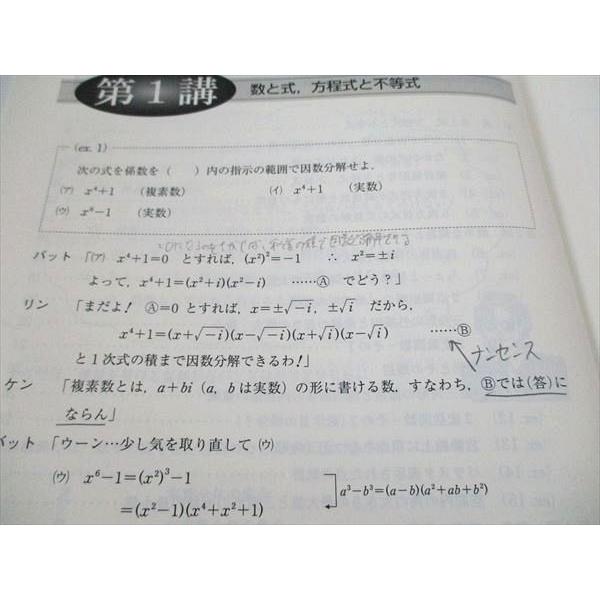 第1講
数と式，方程式と不等式
(ex. 1)
次の式を係数を（　）内の指示の範囲で因数分解せよ．
(ア) x⁴+1　（複素数）　(イ) x⁴+1　（実数）
(ウ) x⁶−1　（実数）
バット「(ア) x⁴+1=0 とすれば，(x²)²=−1　∴ x²=±i
よって，x⁴+1=(x²+i)(x²−i)　……Ⓐ でどう？」
リン「まだよ！　Ⓐ=0 とすれば，x=±√−i, ±√i だから，
x⁴+1=(x+√−i)(x−√−i)(x+√i)(x−√i)　……Ⓑ
ナンセンス
と1次式の積まで因数分解できるわ！」
ケン「複素数とは，a+bi（a, bは実数）の形に書ける数．すなわち，Ⓑでは(答)に
ならん」
バット「ウーン…少し気を取り直して (ウ)
(ウ) x⁶−1=(x²)³−1
a³−b³=(a−b)(a²+ab+b²)
=(x²−1)(x⁴+x²+1)